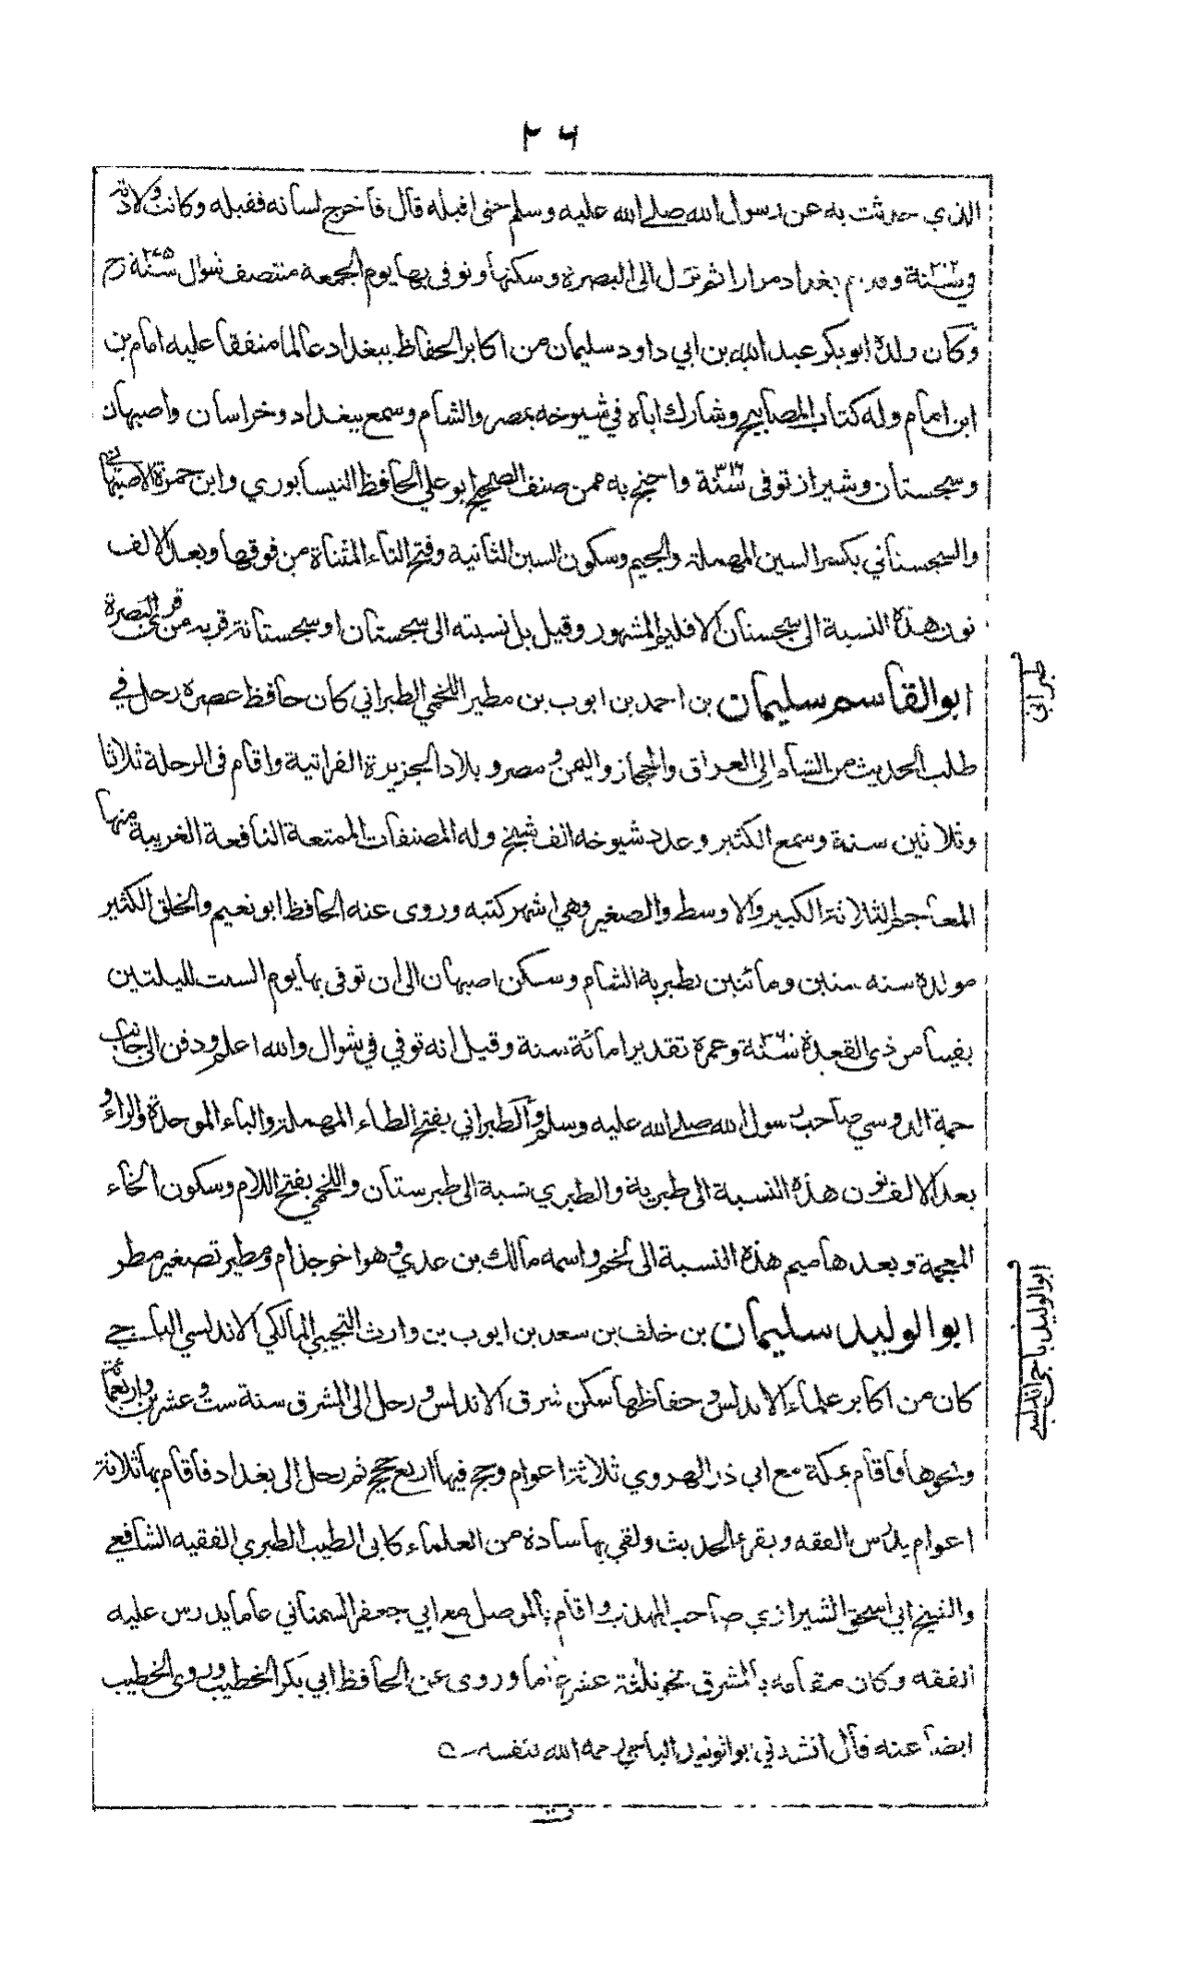 ٢٦
الذي حدثت به عن رسول الله صلى الله عليه وسلم حتى اقبله قال فاخرج لسانه فقبله وكانت ولادته
في سنة ٢٠٢ وقدم بغداد مرارا ثم نزل الى البصرة وسكنها وتوفي بها يوم الجمعة منتصف شوال سنة ٢٧٥ رح
وكان ولده ابو بكر عبد الله بن ابي داود سليمان من اكابر الحفاظ ببغداد عالما متفقا عليه امام بن
ابن امام وله كتاب المصابيح وشارك اباه في شيوخه بمصر والشام وسمع ببغداد وخراسان واصبهان
وسجستان وشيراز توفى سنة ٣١٦ واحتج به ممن صنف الصحيح ابو علي الحافظ النيسابوري وابن حمزة الاصبهاني
والسجستاني بكسر السين المهملة والجيم وسكون السين الثانية وفتح التاء المثناة من فوقها وبعد الالف
نون هذه النسبة الى سجستان الاقليم المشهور وقيل بل نسبته الى سجستان او سجستانة قرية من قرى البصرة
ابو القاسم سليمان بن احمد بن ايوب بن مطير اللخمي الطبراني كان حافظ عصره رحل في
طلب الحديث من الشام الى العراق والحجاز واليمن و مصر و بلاد الجزيرة الفراتية واقام في الرحلة ثلاثا
وثلاثين سنة وسمع الكثير وعدد شيوخه الف شيخ وله المصنفات الممتعة النافعة الغريبة منها
المعاجم الثلاثة الكبير والاوسط والصغير وهي اشهر كتبه وروى عنه الحافظ ابو نعيم والخلق الكثير
مولده سنه ستين ومائتين بطبرية الشام وسكن اصبهان الى ان توفى بها يوم السبت لليلتين
بقيتا من ذي القعدة سنة ٣٦٠ وعمره تقديرا مائة سنة وقيل انه توفي في شوال والله اعلم ودفن الى جانب
حمة الدوسي صاحب رسول الله صلى الله عليه وسلم والطبراني بفتح الطاء المهملة والباء الموحدة والراء و
بعد الالف نون هذه النسبة الى طبرية والطبري نسبة الى طبرستان واللخمي بفتح اللام وسكون الخاء
المعجمة وبعدها ميم هذه النسبة الى لخم واسمه مالك بن عدي وهو اخو جذام ومطير تصغير مطر
ابو الوليد سليمان بن خلف بن سعد بن ايوب بن وارث التجيبي المالكي الاندلسي الباجي
كان من اكابر علماء الاندلس وحفاظها سكن شرق الاندلس ورحل الى المشرق سنة ست وعشرين واربعمائة
ونحوها فاقام بمكة مع ابي ذر الهروي ثلاثة اعوام وحج فيها اربع حجج ثم رحل الى بغداد فاقام بها ثلاثة
اعوام يدرس الفقه ويقرء الحديث ولقي بها سادة من العلماء كابى الطيب الطبري الفقيه الشافعي
والشيخ ابي اسحق الشيرازي صاحب المهذب واقام بالموصل مع ابي جعفر السمناني عاما يدرس عليه
الفقه وكان مقامه بالمشرق نحو ثلثة عشر عاما وروى عن الحافظ ابي بكر الخطيب وروى الخطيب
ايضا عنه قال انشدني ابو الوليد الباجي رحمه الله لنفسه
طبراني
ابو الوليد باجي اندلسي